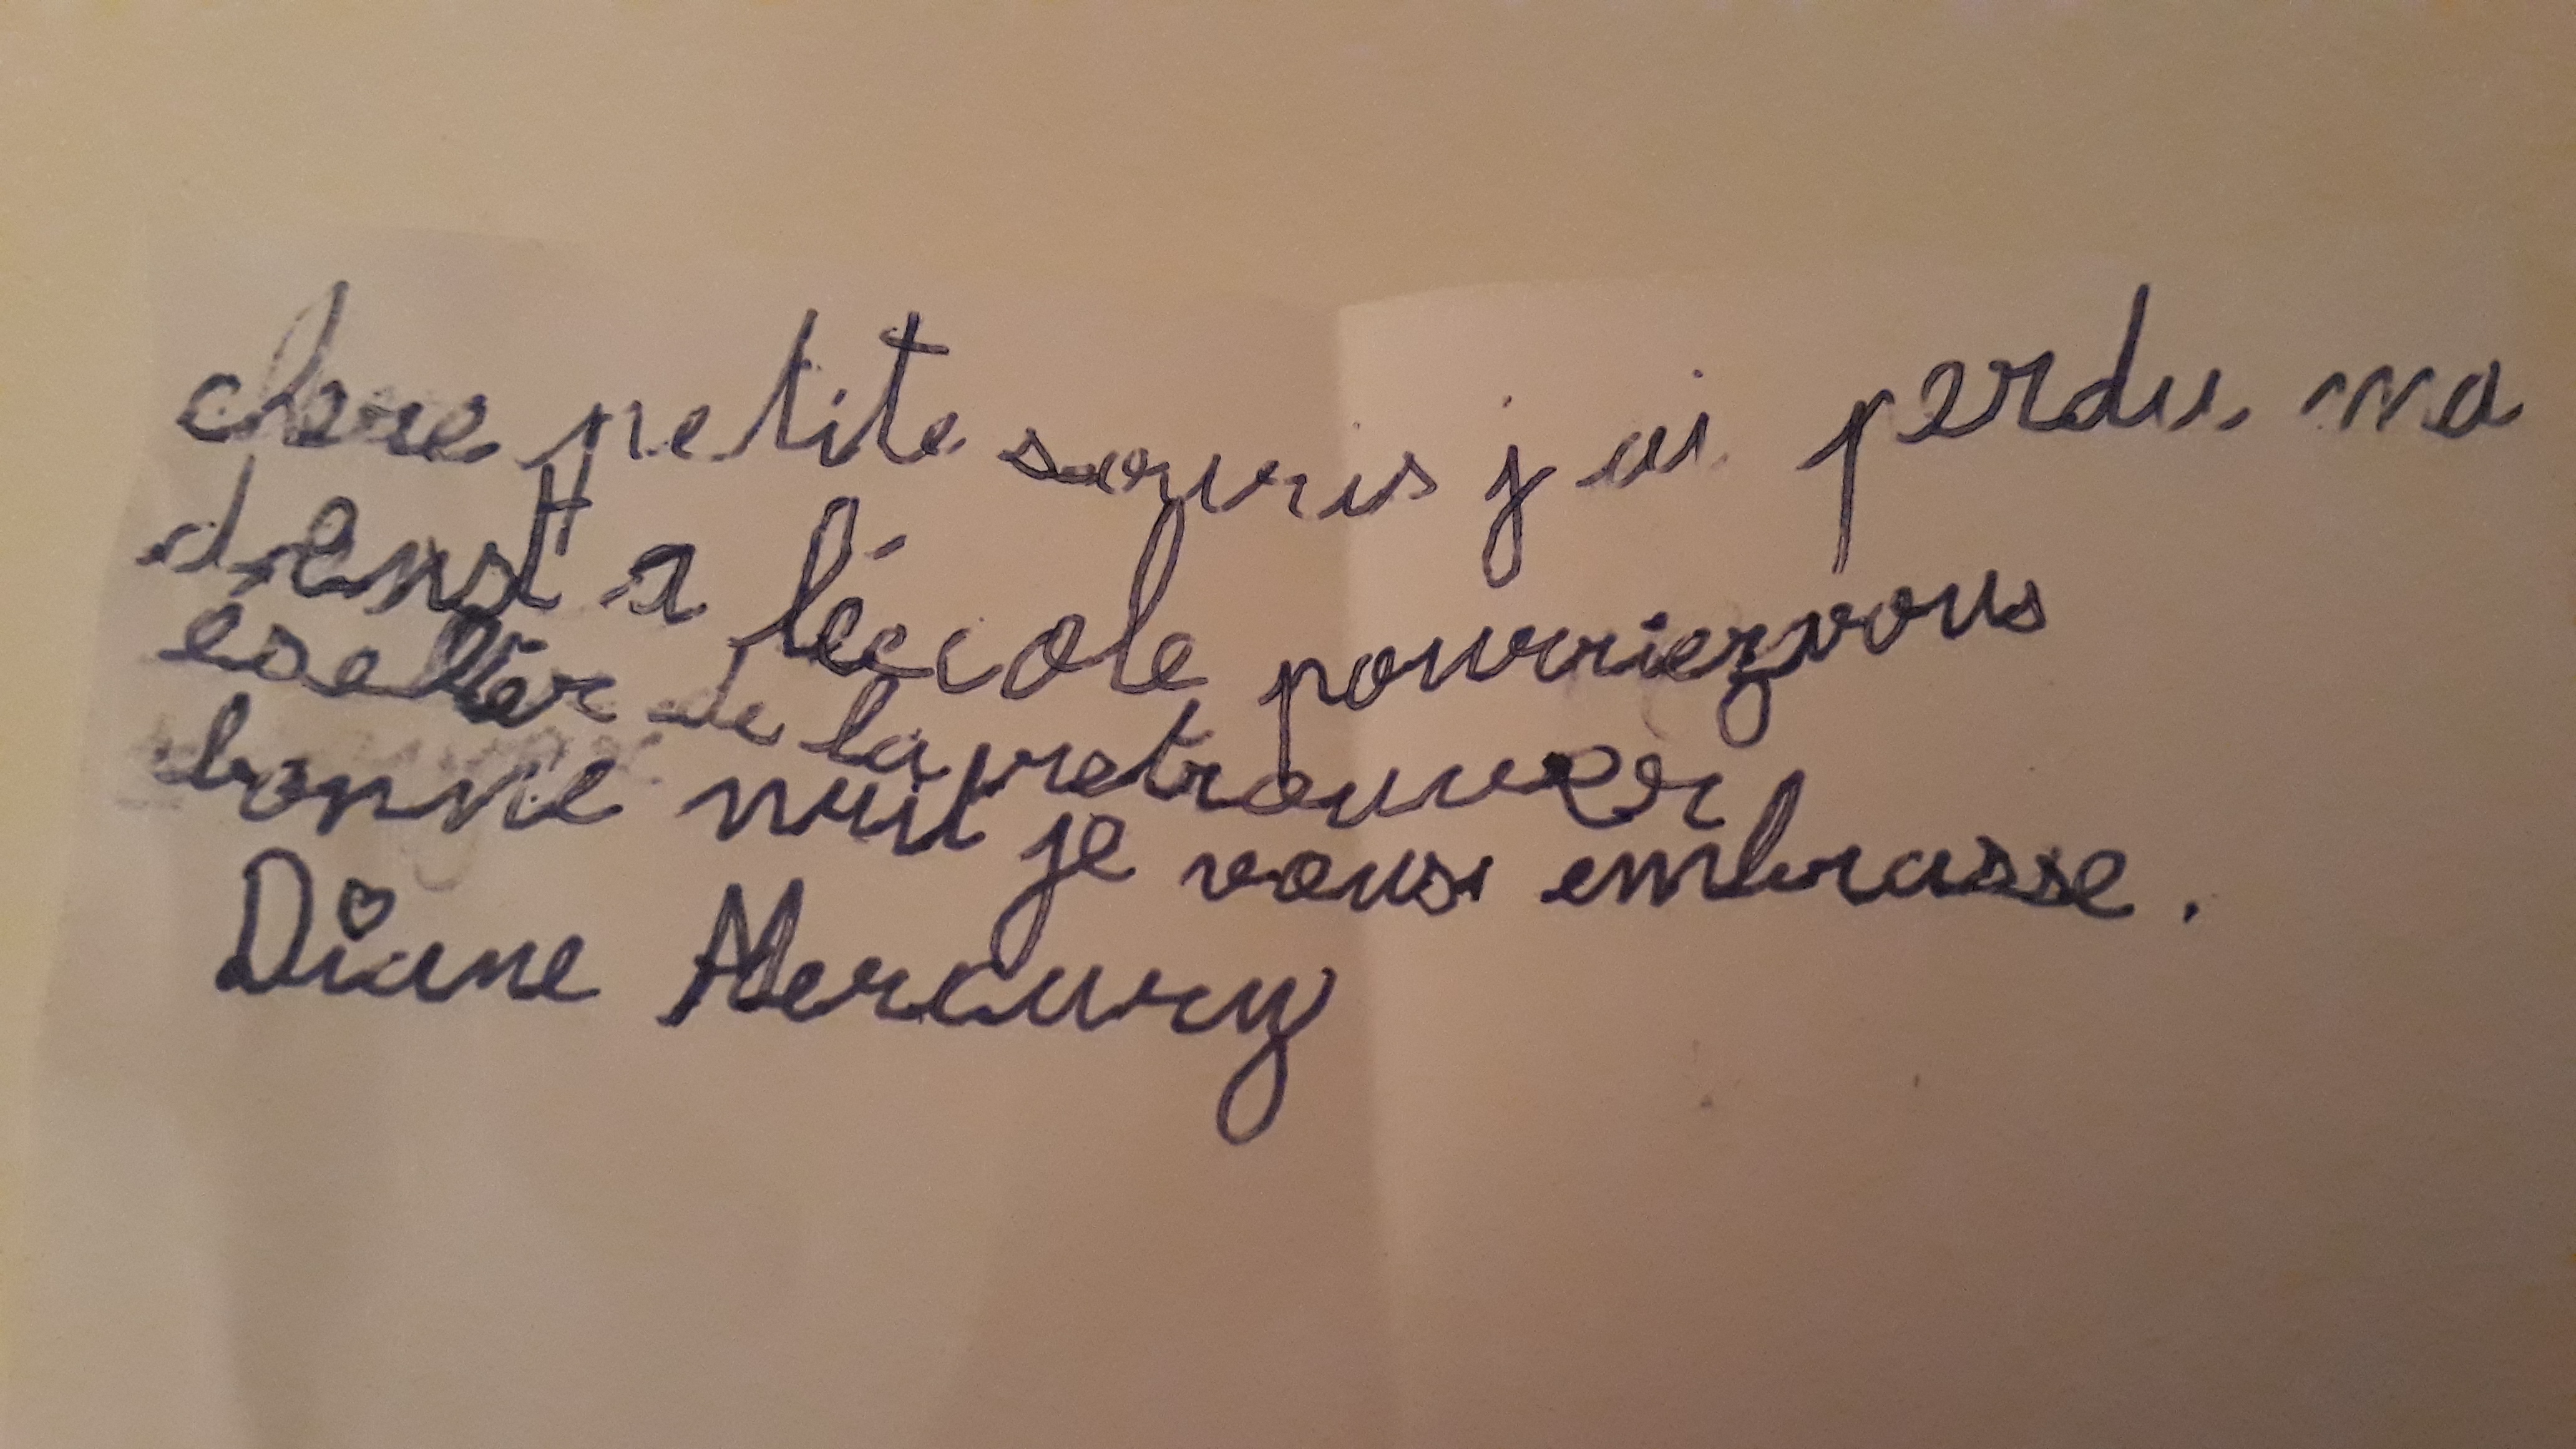 chere petite souris j ai perdu ma
denst a l'école pourriez vous
de la retrouver
bonne nuit je vous embrasse.
Diane Mercury